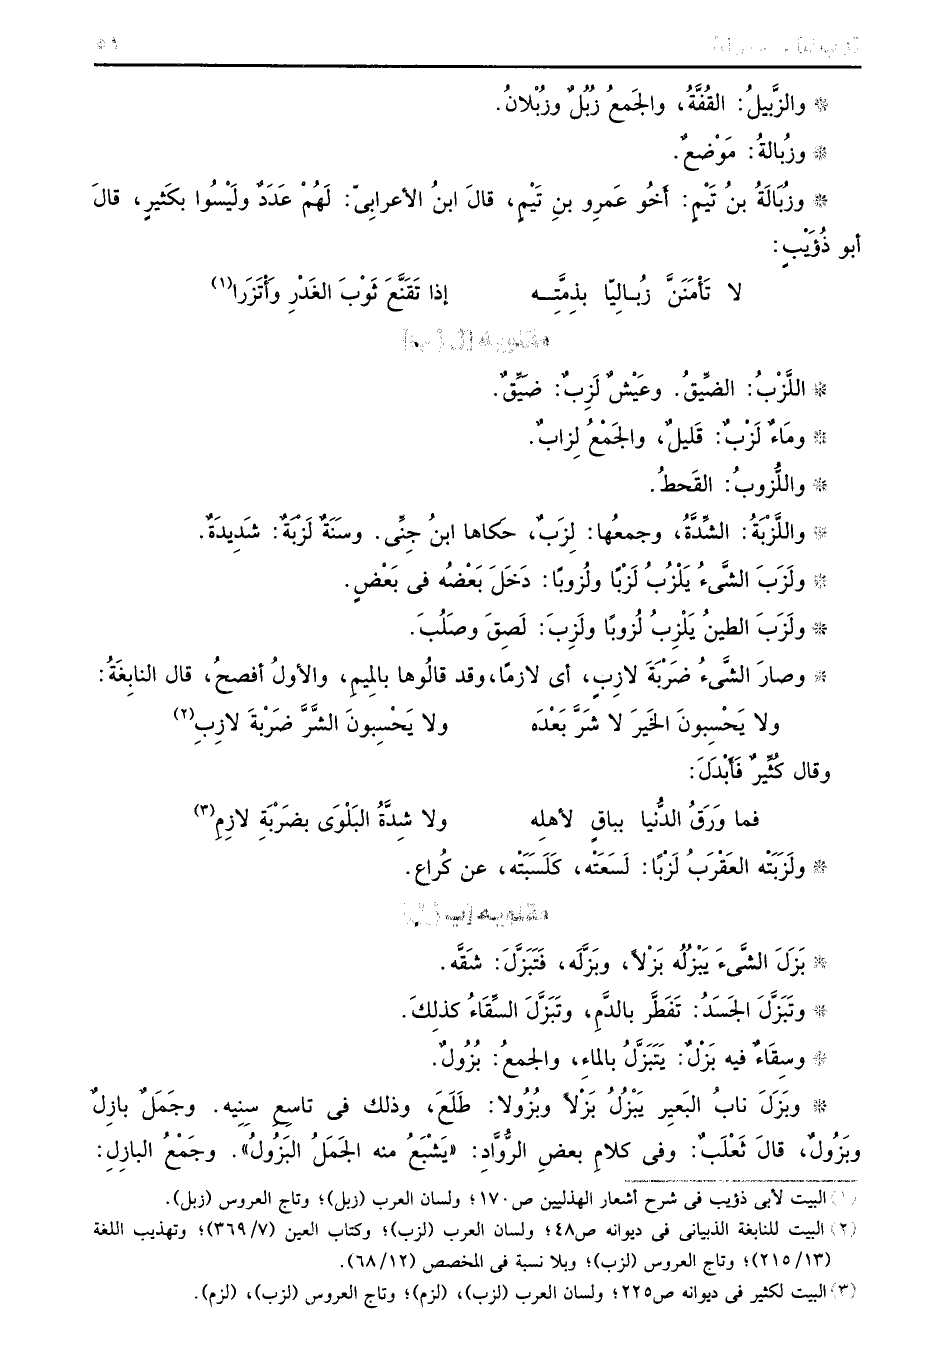 * والزَّبيلُ: القُفَّةُ، والجَمعُ زُبُلٌ وزُبْلانُ.
* وزُبالةُ: مَوْضعٌ.
* وزُبَالَةُ بنُ تَيْمٍ: أخُو عَمرِو بنِ تَيْمٍ، قالَ ابنُ الأعرابىّ: لَهُمْ عَدَدٌ ولَيْسُوا بكَثيرٍ، قالَ
أبو ذُؤَيْبٍ:
لا تَأْمَنَنَّ زُبـالِيّا بذِمتَّـِـه إذا تَقَنَّعَ ثَوْبَ الغَدْرِ وأْتَزَرا(١)
مقلوبه [ل ز ب]
* اللَّزْبُ: الضيِّقُ. وعَيْشٌ لَزِبٌ: ضَيِّقٌ.
* ومَاءٌ لَزْبٌ: قَليلٌ، والجَمْعُ لِزابٌ.
* واللُّزوبُ: القَحطُ.
* واللَّزْبَةُ: الشِّدَّةُ، وجمعُها: لِزَبٌ، حكاها ابنُ جِنِّى. وسَنَةٌ لَزْبَةٌ: شَديدَةٌ.
* ولَزَبَ الشَّىءُ يَلْزُبُ لَزْبًا ولُزوبًا: دَخَلَ بَعْضُه فى بَعْضٍ.
* ولَزَبَ الطينُ يَلْزِبُ لُزوبًا ولَزِبَ: لَصِقَ وصَلُبَ.
* وصارَ الشَّىءُ ضَرْبَةَ لازِبٍ، أى لازمًا، وقد قالُوها بالميمِ، والأولُ أفصحُ، قال النابغَةُ:
ولا يَحْسِبونَ الخَيرَ لا شَرَّ بَعْدَه ولا يَحْسِبونَ الشَّرَّ ضَرْبةَ لازِبِ(٢)
وقال كُثِّيرٌ فَأبْدَلَ:
فما وَرَقُ الدُّنيا بباقٍ لأهلِه ولا شِدَّةُ البَلْوَى بضَرْبَةِ لازِمِ(٣)
* ولَزَبَتْه العَقْرَبُ لَزْبًا: لَسَعَتْه، كَلَسَبَتْه، عن كُراع.
مقلوبه [ب ز ل]
* بَزَلَ الشَّىءَ يَبْزُلُه بَزْلاً، وبَزَّلَه، فَتَبَزَّلَ: شقَّه.
* وتَبَزَّلَ الجَسَدُ: تَفَطَّر بالدَّمِ، وتَبَزَّلَ السِّقَاءُ كذلِكَ.
* وسِقَاءٌ فيه بَزْلٌ: يَتَبَزَّلُ بالماءِ، والجمعُ: بُزُولٌ.
* وبَزَلَ نابُ البَعيرِ يَبْزُلُ بَزْلاً وبُزُولا: طَلَعَ، وذلك فى تاسِعِ سِنِيه. وجَمَلٌ بازِلٌ
وبَزُولٌ، قالَ ثَعْلَبٌ: وفى كلامِ بعضِ الرُّوَّاد: «يَشْبَعُ منه الجَمَلُ البَزُولُ». وجَمْعُ البازِلِ:
(١) البيت لأبى ذؤيب فى شرح أشعار الهذليين ص١٧٠؛ ولسان العرب (زبل)؛ وتاج العروس (زبل).
(٢) البيت للنابغة الذبيانى فى ديوانه ص٤٨؛ ولسان العرب (لزب)؛ وكتاب العين (٣٦٩/٧)؛ وتهذيب اللغة
(٢١٥/١٣)؛ وتاج العروس (لزب)؛ وبلا نسبة فى المخصص (٦٨/١٢).
(٣) البيت لكثير فى ديوانه ص٢٢٥؛ ولسان العرب (لزب)، (لزم)؛ وتاج العروس (لزب)، (لزم).